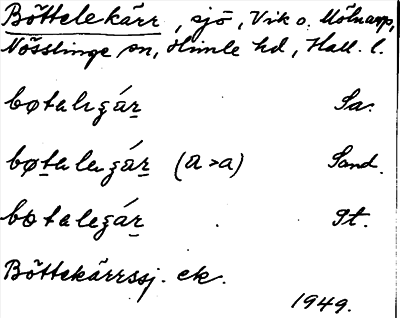 Böttelekärr, sjö, Vik o. Mölnarp,
Nösslinge sn, Himle hd, Hall. l.
bøtalegár Sa.
bøtalegár (a>a) Sand.
bøtalegár St.
Böttekärrssj. ek.
1949.